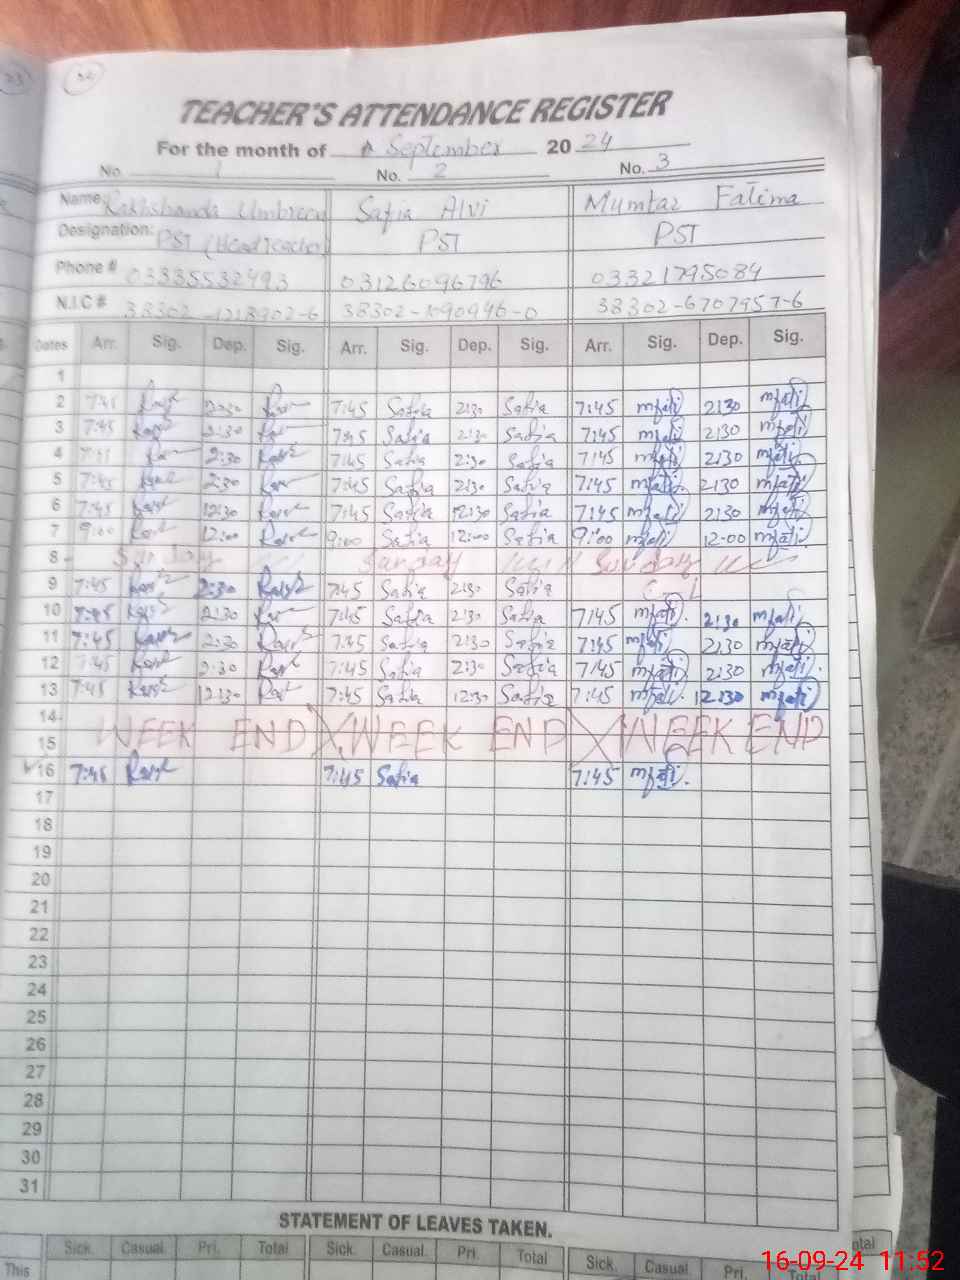 23
34
TEACHER'S ATTENDANCE REGISTER
For the month of September 20 24
No. 1 No. 2 No. 3
Name Rakhshanda Umbreen Safia Alvi Mumtaz Fatima
Designation: PST (Head Teacher) PST PST
Phone # 03335532493 03126096796 03321795084
N.I.C # 38302-1218902-6 38302-1090946-0 38302-6707957-6
Dates Arr. Sig. Dep. Sig. Arr. Sig. Dep. Sig. Arr. Sig. Dep. Sig.
1
2 7:45 2:30 7:45 Safia 2:30 Safia 7:45 mfati 2:30 mfati
3 7:45 2:30 7:45 Safia 2:30 Safia 7:45 mfati 2:30 mfati
4 7:45 2:30 7:45 Safia 2:30 Safia 7:45 mfati 2:30 mfati
5 7:45 2:30 7:45 Safia 2:30 Safia 7:45 mfati 2:30 mfati
6 7:45 12:30 7:45 Safia 12:30 Safia 7:45 mfati 2:30 mfati
7 9:00 12:00 9:00 Safia 12:00 Safia 9:00 mfati 12-00 mfati
8 Sunday Sunday Sunday
9 7:45 2:30 7:45 Safia 2:30 Safia C L
10 7:45 2:30 7:45 Safia 2:30 Safia 7:45 mfati 2:30 mfati
11 7:45 2:30 7:45 Safia 2:30 Safia 7:45 mfati 2:30 mfati
12 7:45 2:30 7:45 Safia 2:30 Safia 7:45 mfati 2:30 mfati
13 7:45 12:30 7:45 Safia 12:30 Safia 7:45 mfati 12:30 mfati
14
WEEK END WEEK END WEEK END
15
16 7:45 7:45 Safia 7:45 mfati
17
18
19
20
21
22
23
24
25
26
27
28
29
30
31
STATEMENT OF LEAVES TAKEN.
Sick. Casual. Pri. Total Sick. Casual. Pri. Total Sick. Casual. Pri. Total
This
16-09-24 11:52